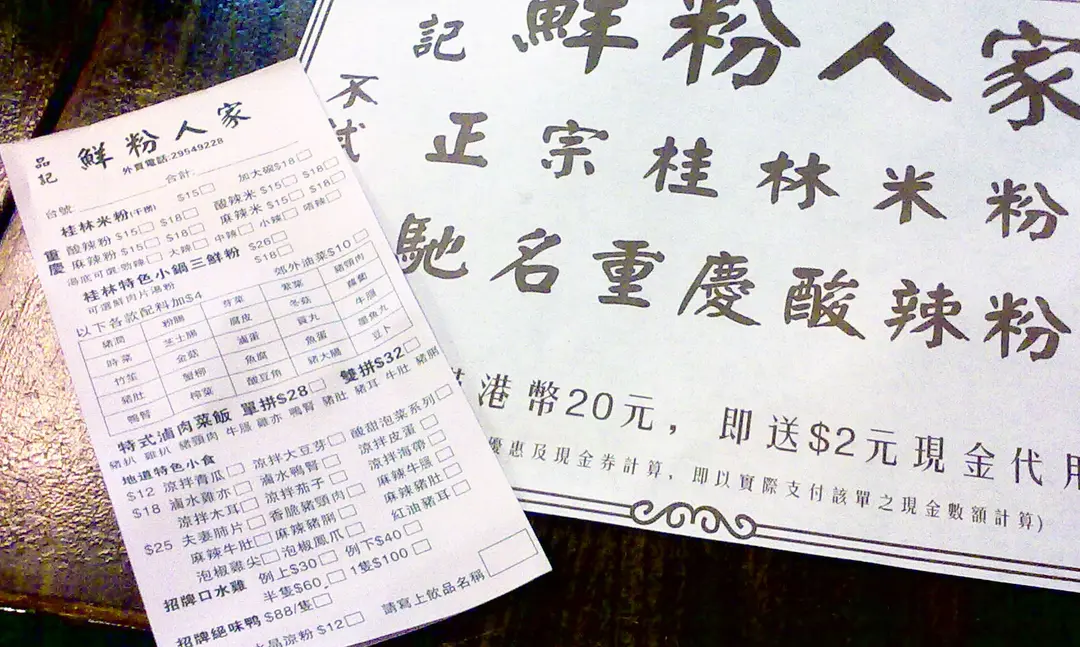 品記 鮮粉人家
外賣電話:29549228
台號: 合計: 加大碗$18
桂林米粉(干撈) $15 $18
重慶 酸辣粉 $15 $18 酸辣米 $15 $18
麻辣粉 $15 $18 麻辣米 $15 $18
湯底可選:勁辣 大辣 中辣 小辣 唔辣
桂林特色小鍋三鮮粉 $26
可選鮮肉片湯粉 $18 郊外油菜$10
以下各款配料加$4
豬潤 粉腸 芽菜 紫菜 豬頸肉
時菜 芝士腸 腐皮 冬菇 蘿蔔
竹笙 金菇 滷蛋 貢丸 牛腩
豬肚 蟹柳 魚腐 魚蛋 墨魚丸
鴨腎 榨菜 酸豆角 豬大腸 豆卜
特式滷肉菜飯 單拼$28 雙拼$32
豬扒 雞扒 豬頸肉 牛腩 雞亦 鴨腎 豬肚 豬耳 牛肚 豬脷
地道特色小食
$12 涼拌青瓜 涼拌大豆芽 酸甜泡菜系列
$18 滷水雞亦 滷水鴨腎 涼拌皮蛋
涼拌木耳 涼拌茄子 涼拌海帶
$25 夫妻肺片 香脆豬頸肉 麻辣牛腩
麻辣牛肚 麻辣豬脷 麻辣豬肚
泡椒雞尖 泡椒鳳爪 紅油豬耳
招牌口水雞 例上$30 例下$40
半隻$60 1隻$100
招牌絕味鸭 $88/隻
晶涼粉 $12 請寫上飲品名稱
記 鮮粉人家
不試
正宗桂林米粉
馳名重慶酸辣粉
港幣20元，即送$2元現金代用
優惠及現金券計算，即以實際支付該單之現金數額計算)